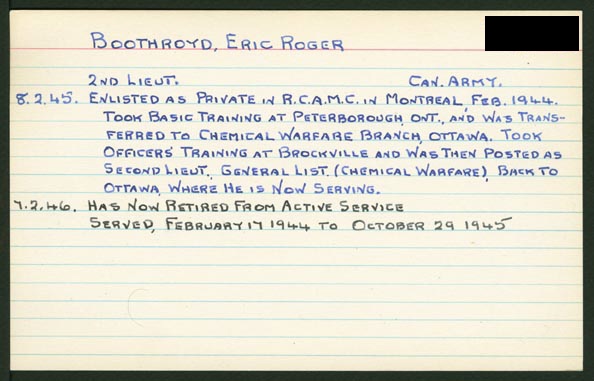 BOOTHROYD, ERIC ROGER
2ND LIEUT. CAN. ARMY.
8.2.45. ENLISTED AS PRIVATE IN R.C.A.M.C. IN MONTREAL, FEB. 1944.
TOOK BASIC TRAINING AT PETERBOROUGH, ONT., AND WAS TRANS-
FERRED TO CHEMICAL WARFARE BRANCH, OTTAWA. TOOK
OFFICERS' TRAINING AT BROCKVILLE AND WAS THEN POSTED AS
SECOND LIEUT., GENERAL LIST. (CHEMICAL WARFARE), BACK TO
OTTAWA, WHERE HE IS NOW SERVING.
7.2.46. HAS NOW RETIRED FROM ACTIVE SERVICE
SERVED, FEBRUARY 17 1944 TO OCTOBER 29 1945